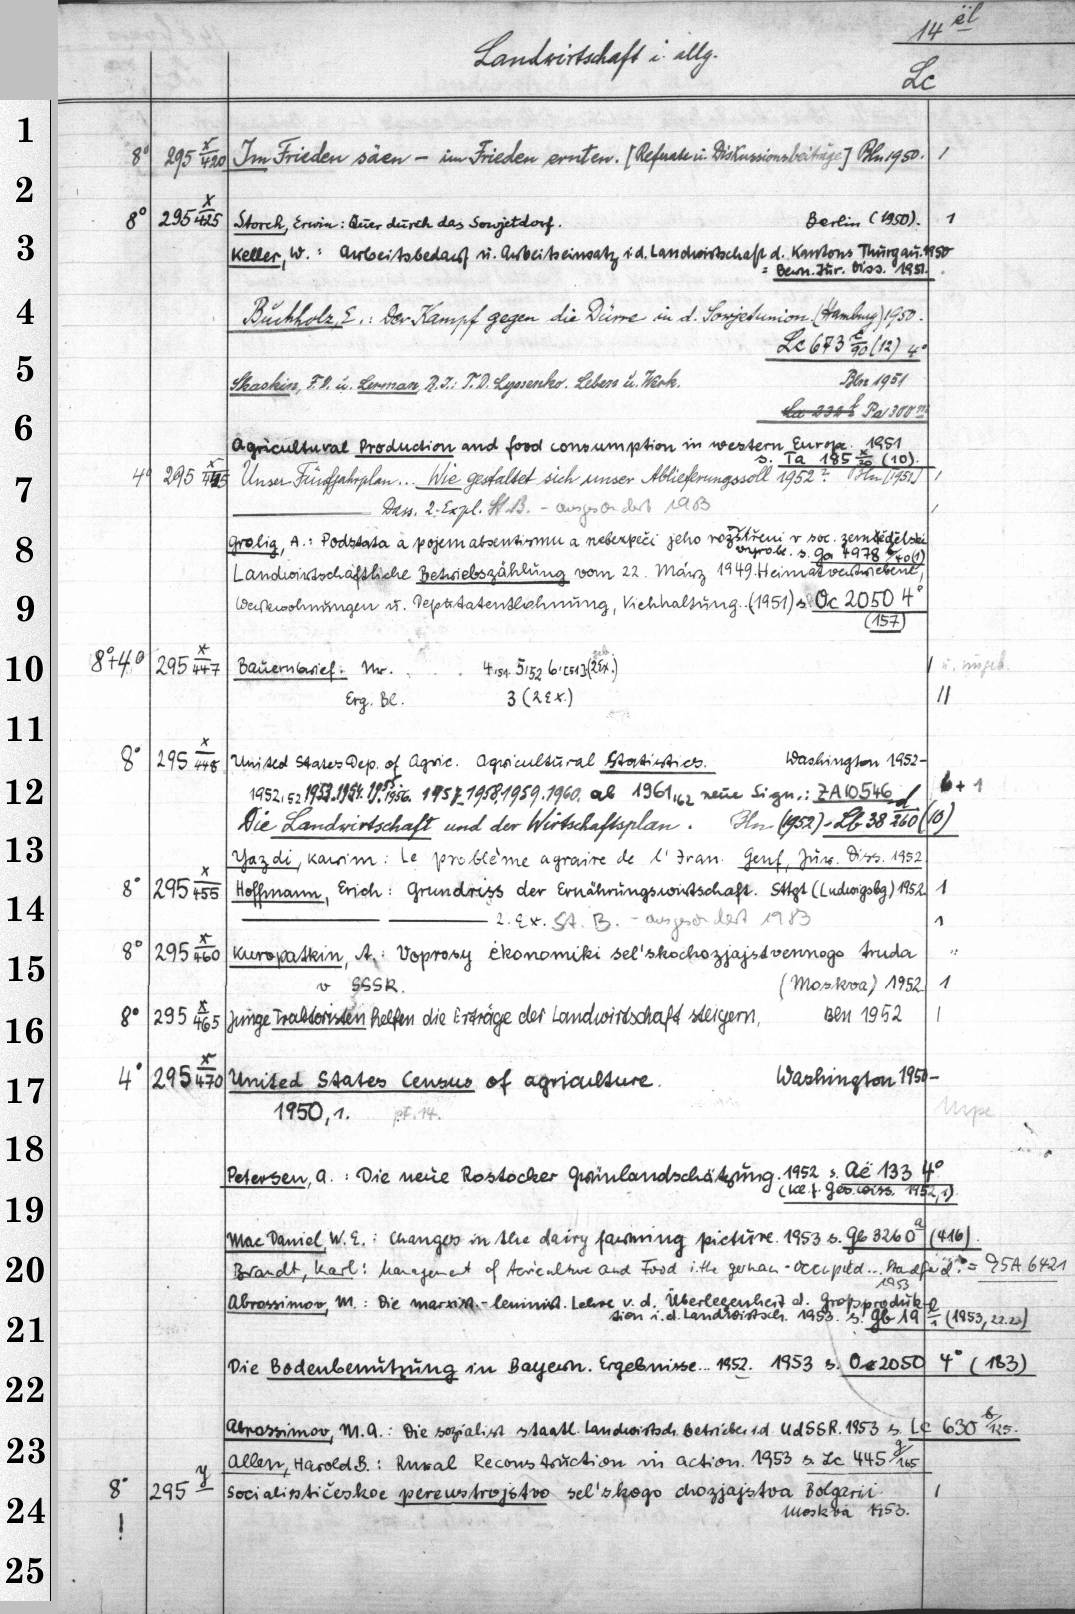 14 ël
Landwirtschaft i. allg.
Lc
1
8° 295 x/420 Im Frieden säen – im Frieden ernten. [Referate u. Diskussionsbeiträge] Bln 1950. 1
2
8° 295 x/425 Storch, Erwin: Quer durch das Sowjetdorf. Berlin (1950). 1
3
Keller, W.: Arbeitsbedarf u. Arbeitseinsatz i d. Landwirtschaft d. Kantons Thurgau. 1950
= Bern. Jur. Diss. 1951.
4
Buchholz, E.: Der Kampf gegen die Dürre in d. Sowjetunion. (Hamburg) 1950.
Lc 673 c/90 (12) 4°
5
Skaskin, F.D. u. Lerman, R.I.: T.D. Lyssenko. Leben u. Werk. Bln 1951
Pa 300 m
6
Agricultural Production and food consumption in western Europa. 1951
s. Ta 185 x/20 (10).
7
4° 295 x/445 Unser Fünfjahrplan... Wie gestaltet sich unser Ablieferungssoll 1952? Bln (1951) 1
Dass. 2. Expl. St.B. – ausgesondert 1983 1
8
Grolig, A.: Podstata a pojem absentismu a nebezpečí jeho rozšíření v soc. zemědělské
výrobě. s. Ga 4978 b/40(1)
Landwirtschaftliche Betriebszählung vom 22. März 1949. Heimatvertriebene,
9
Werkwohnungen u. Deputatentlohnung, Viehhaltung.. (1951) s. Oc 2050 4°
(157)
10
8°+4° 295 x/447 Bauernbrief. Nr. . . . 4.'51. 5'52 6'(51)(2 Ex.) geb. 1 u. ungeb.
Erg. Bl. 3 (2 Ex.) 11
11
8° 295 x/448 United States Dep. of Agric. Agricultural Statistics. Washington 1952–
12
1952,'52 1953.1954.1955.1956. 1957.1958.1959.1960. ab 1961,'62 neue Sign.: ZA 10546 6+1
Die Landwirtschaft und der Wirtschaftsplan. Bln (1952) – Lb 38 d/260 (10)
13
Yazdi, Karim: Le problème agraire de l'Iran. Genf, Jur. Diss. 1952
8° 295 x/455 Hoffmann, Erich: Grundriss der Ernährungswirtschaft. Sttgt (Ludwigsbg) 1952 1
14
2. Ex. St. B. – ausgesondert 1983 1
8° 295 x/460 Kuropatkin, A.: Voprosy ėkonomiki sel'skochozjajstvennogo truda "
15
v SSSR. (Moskva) 1952 1
16
8° 295 x/465 Junge Traktoristen helfen die Erträge der Landwirtschaft steigern. Bln 1952 1
17
4° 295 x/470 United States Census of agriculture. Washington 1950–
1950, 1. pt. 14.
18
Petersen, A.: Die neue Rostocker Grünlandschätzung. 1952 s. Aë 133 4°
(Kl. f. Ges.wiss. 1952,1)
19
Mac Daniel, W.E.: Changes in the dairy farming picture. 1953 s. Gb 3260 a (416).
20
Brandt, Karl: Management of Agriculture and Food i. the german-occupied... = 95A 6421
1953
Abrossimov, M.: Die marxist.-leninist. Lehre v. d. Überlegenheit d. Grossproduk-
tion i. d. Landwirtsch. 1953. s. Gb 19 e/1 (1953, 22.23)
21
Die Bodenbenutzung in Bayern. Ergebnisse... 1952. 1953 s. Oc 2050 4° (183)
22
Abrossimov, M.A.: Die sozialist. staatl. Landwirtsch. Betriebe i.d. UdSSR. 1953 s. Lc 630 b/125.
23
Allen, Harold B.: Rural Reconstruction in action. 1953 s. Lc 445 g/165
24
8° 295 y Socialističeskoe pereustrojstvo sel'skogo chozjajstva Bolgarii. 1
Moskva 1953.
!
25